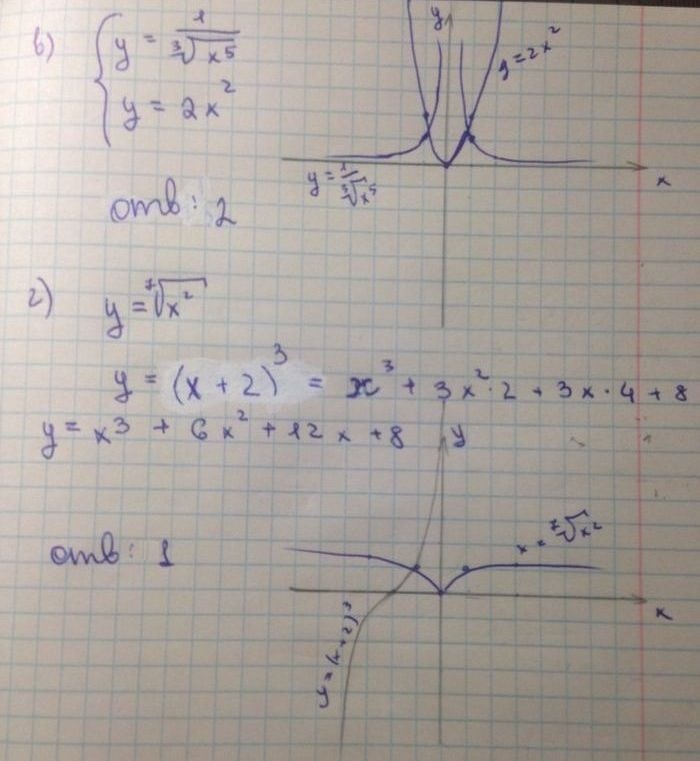 в) { y = 1/∛x⁵
y = 2x²
y
y = 2x²
y = 1/∛x⁵
x
отв: 2
г) y = ⁷√x²
y = (x + 2)³ = x³ + 3x²·2 + 3x·4 + 8
y = x³ + 6x² + 12x + 8
y
отв: 1
x = ⁷√x²
x
y = (x+2)³